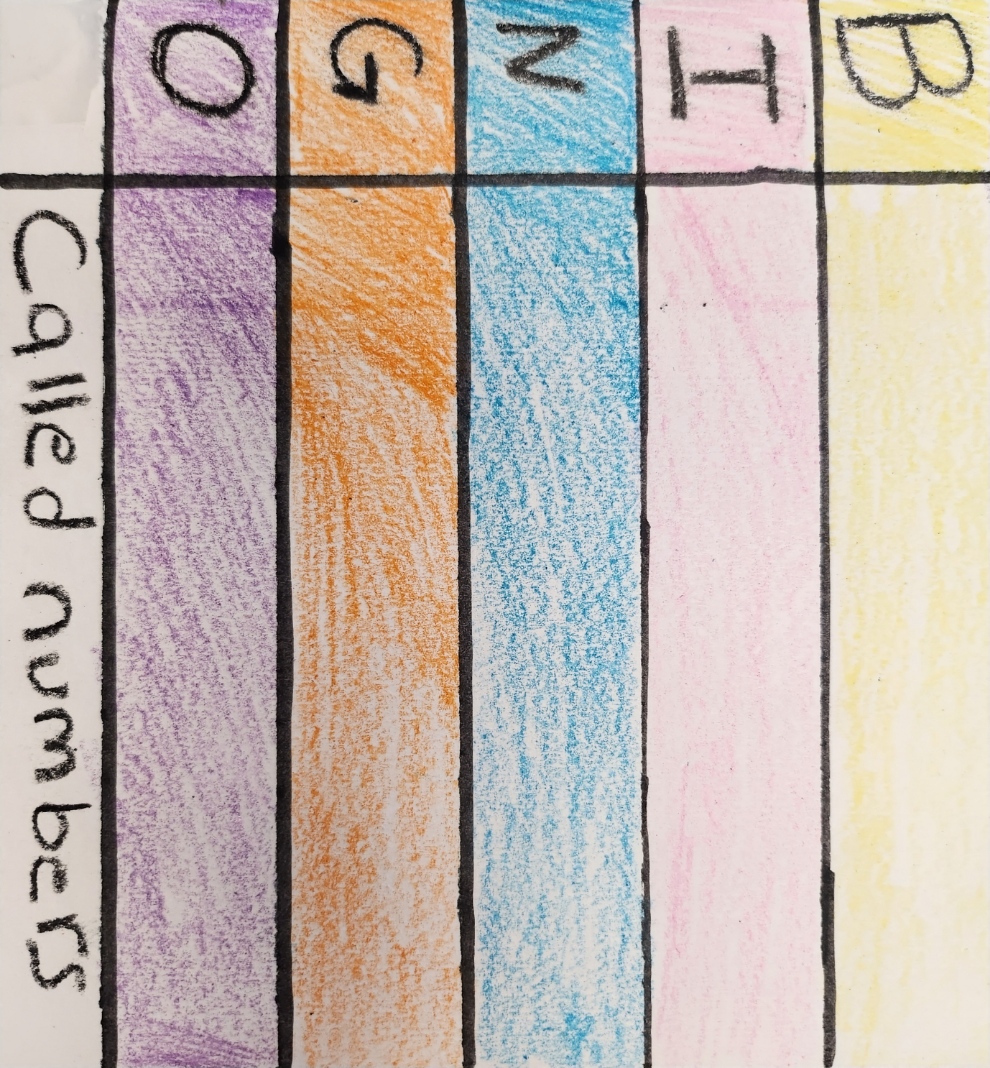 B
I
N
G
O
Called numbers